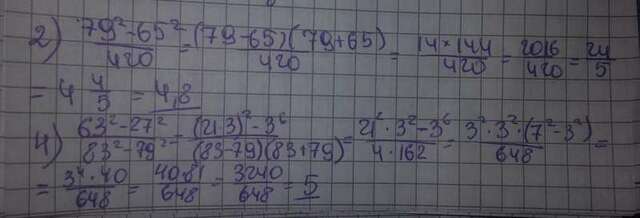 2) (79² - 65²)/420 = (79-65)(79+65)/420 = 14×144/420 = 2016/420 = 24/5
= 4 4/5 = 4,8
4) (63² - 27²)/(83² - 79²) = ((21·3)² - 3⁶)/((83-79)(83+79)) = (21²·3² - 3⁶)/(4·162) = 3²·3²·(7² - 3²)/648 =
= 3⁴·40/648 = 40·81/648 = 3240/648 = 5